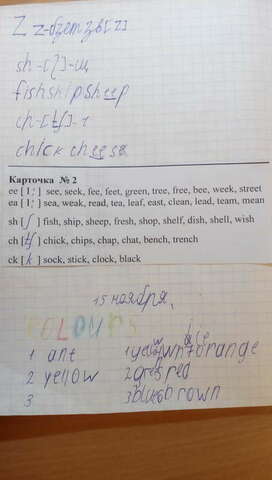 Z z - [z]
sh-[ʃ]-щ
fish ship sheep
ch-[tʃ]-ч
chick cheese
Карточка № 2
ee [ I: ] see, seek, fee, feet, green, tree, free, bee, week, street
ea [ I: ] sea, weak, read, tea, leaf, east, clean, lead, team, mean
sh [ ʃ ] fish, ship, sheep, fresh, shop, shelf, dish, shell, wish
ch [ tʃ ] chick, chips, chap, chat, bench, trench
ck [ k ] sock, stick, clock, black
15 ноября.
COLOURS
1 ant
2 yellow
3
orange
red
3 blue 6 brown